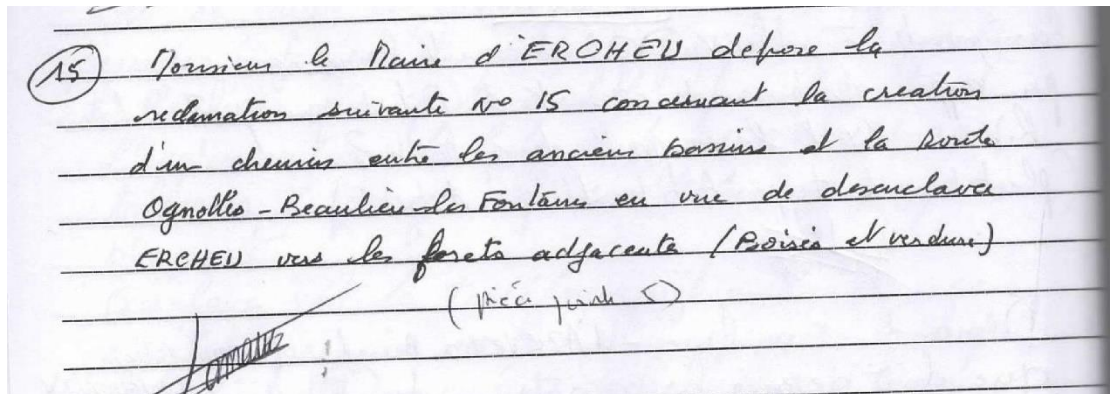 15 Monsieur le Maire d'ERCHEU depose la
reclamation suivante No 15 concernant la creation
d'un chemin entre les anciens bassins et la Route
Ognolles - Beaulieu-les Fontaines en vue de desenclaver
ERCHEU vers les forets adjacente (Boisés et verdure)
(pièce jointe